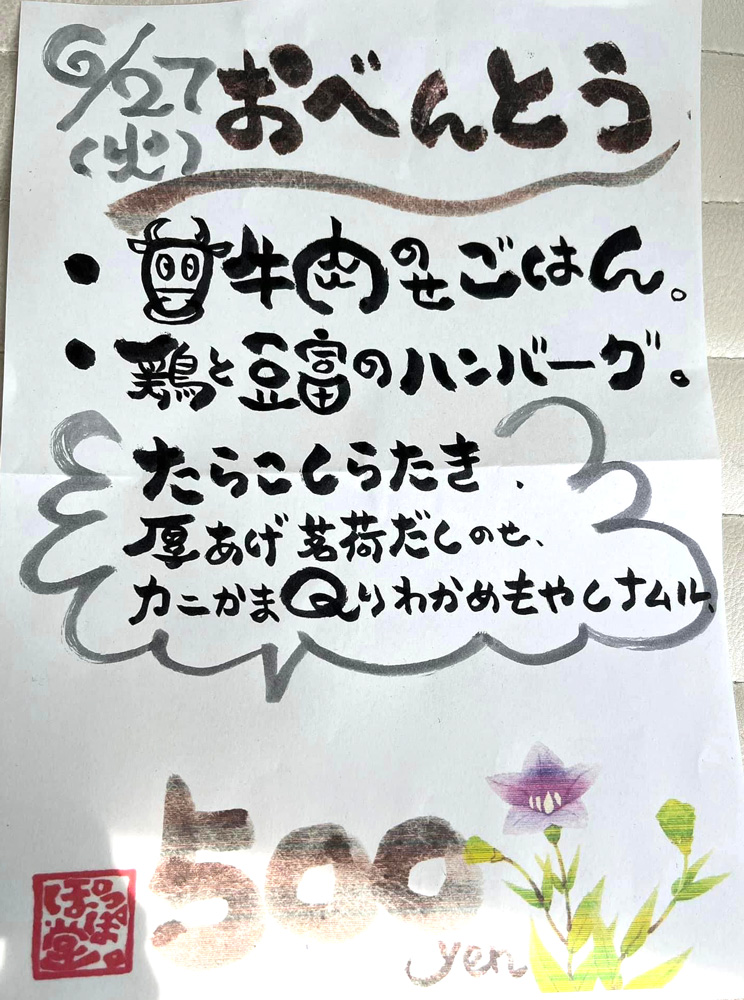 6/27
(火)
おべんとう
・牛肉のせごはん。
・鶏と豆富のハンバーグ。
たらこしらたき、
厚あげ茗荷だしのせ、
カニかまQりわかめもやしナムル、
500
yen
ぽっぽ堂